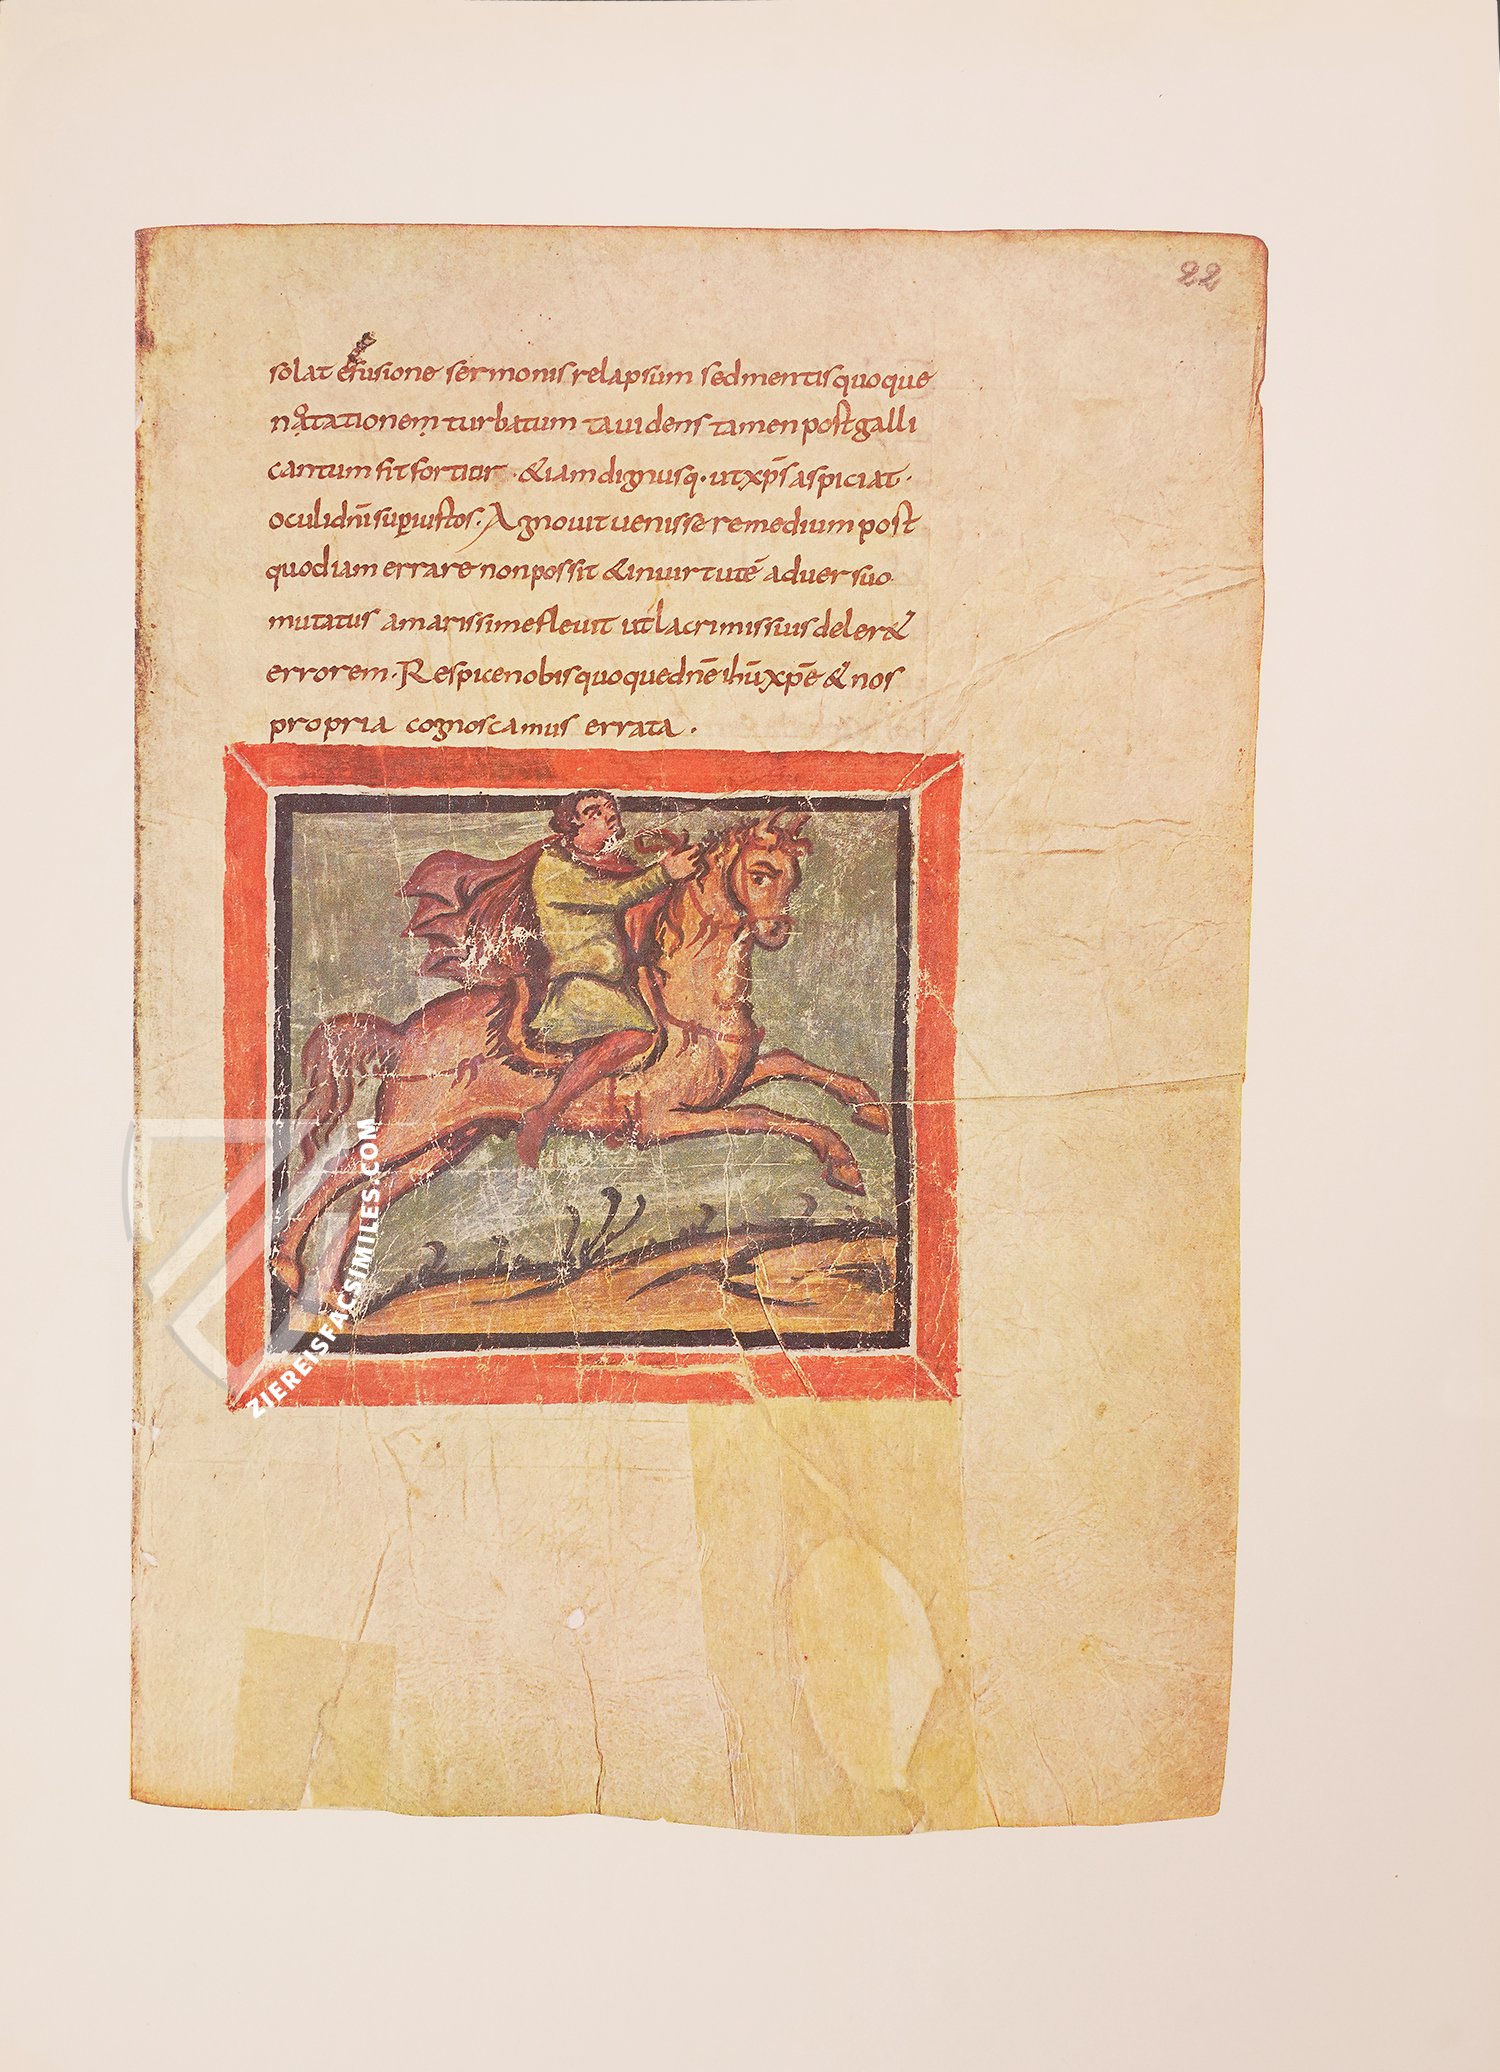 22
solat effusione sermonis relapsum sed mentis quoque
notationem turbatum ta uidens tamen post galli
cantum fit fortior · & iam dignus q · ut xp̄s aspiciat ·
oculi dn̄i sup iustos · Agnouit uenisse remedium post
quod iam errare non possit & in uirtutē aduersuo
mutatus amarissime fleuit ut lacrimis suis deler&
errorem · Respice nobis quoque dn̄e ihū xp̄e & nos
propria cognoscamus errata ·
ZIEREISFACSIMILES.COM